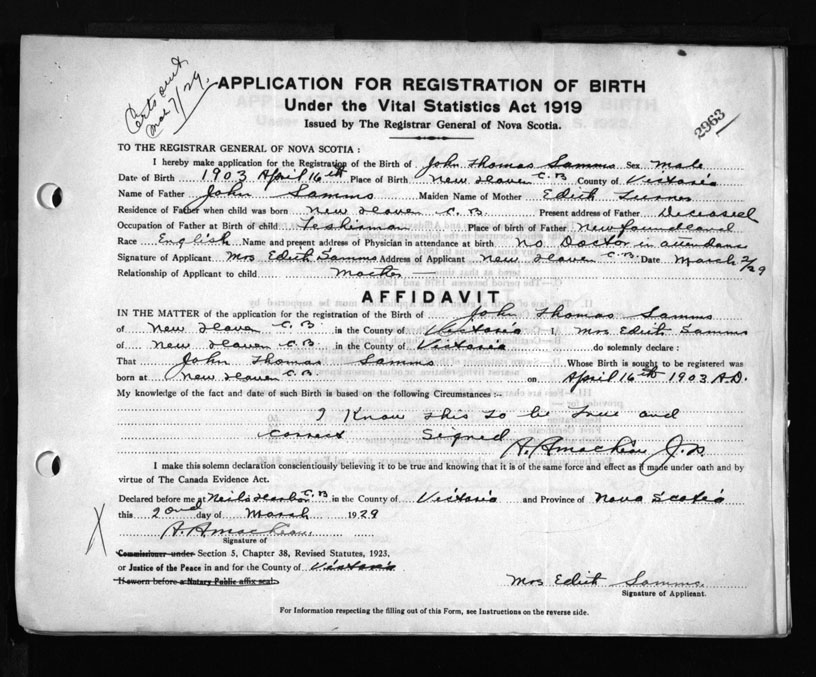 Certs sent
Mar 7/29.
APPLICATION FOR REGISTRATION OF BIRTH
Under the Vital Statistics Act 1919
Issued by The Registrar General of Nova Scotia.
2963
TO THE REGISTRAR GENERAL OF NOVA SCOTIA :
I hereby make application for the Registration of the Birth of John Thomas Samms Sex Male
Date of Birth 1903 April 16th Place of Birth New Haven C.B County of Victoria
Name of Father John Samms Maiden Name of Mother Edith Turner
Residence of Father when child was born New Haven C.B Present address of Father Deceased
Occupation of Father at Birth of child Fisherman Place of birth of Father Newfoundland
Race English Name and present address of Physician in attendance at birth No Doctor in attendance
Signature of Applicant Mrs Edith Samms Address of Applicant New Haven C.B. Date March 2/29
Relationship of Applicant to child Mother —
AFFIDAVIT
IN THE MATTER of the application for the registration of the Birth of John Thomas Samms
of New Haven C.B in the County of Victoria I, Mrs Edith Samms
of New Haven C.B in the County of Victoria do solemnly declare :
That John Thomas Samms Whose Birth is sought to be registered was
born at New Haven C.B. on April 16th 1903 A.D.
My knowledge of the fact and date of such Birth is based on the following Circumstances :-
I Know this to be True and
Correct Signed J.P.
I make this solemn declaration conscientiously believing it to be true and knowing that it is of the same force and effect as if made under oath and by
virtue of The Canada Evidence Act.
Declared before me at Neil's Harbor C.B in the County of Victoria and Province of Nova Scotia
this 2ond day of March 1929
Signature of
Commissioner under Section 5, Chapter 38, Revised Statutes, 1923,
or Justice of the Peace in and for the County of Victoria
If sworn before a Notary Public affix seal.
Mrs Edith Samms
Signature of Applicant.
For Information respecting the filling out of this Form, see Instructions on the reverse side.